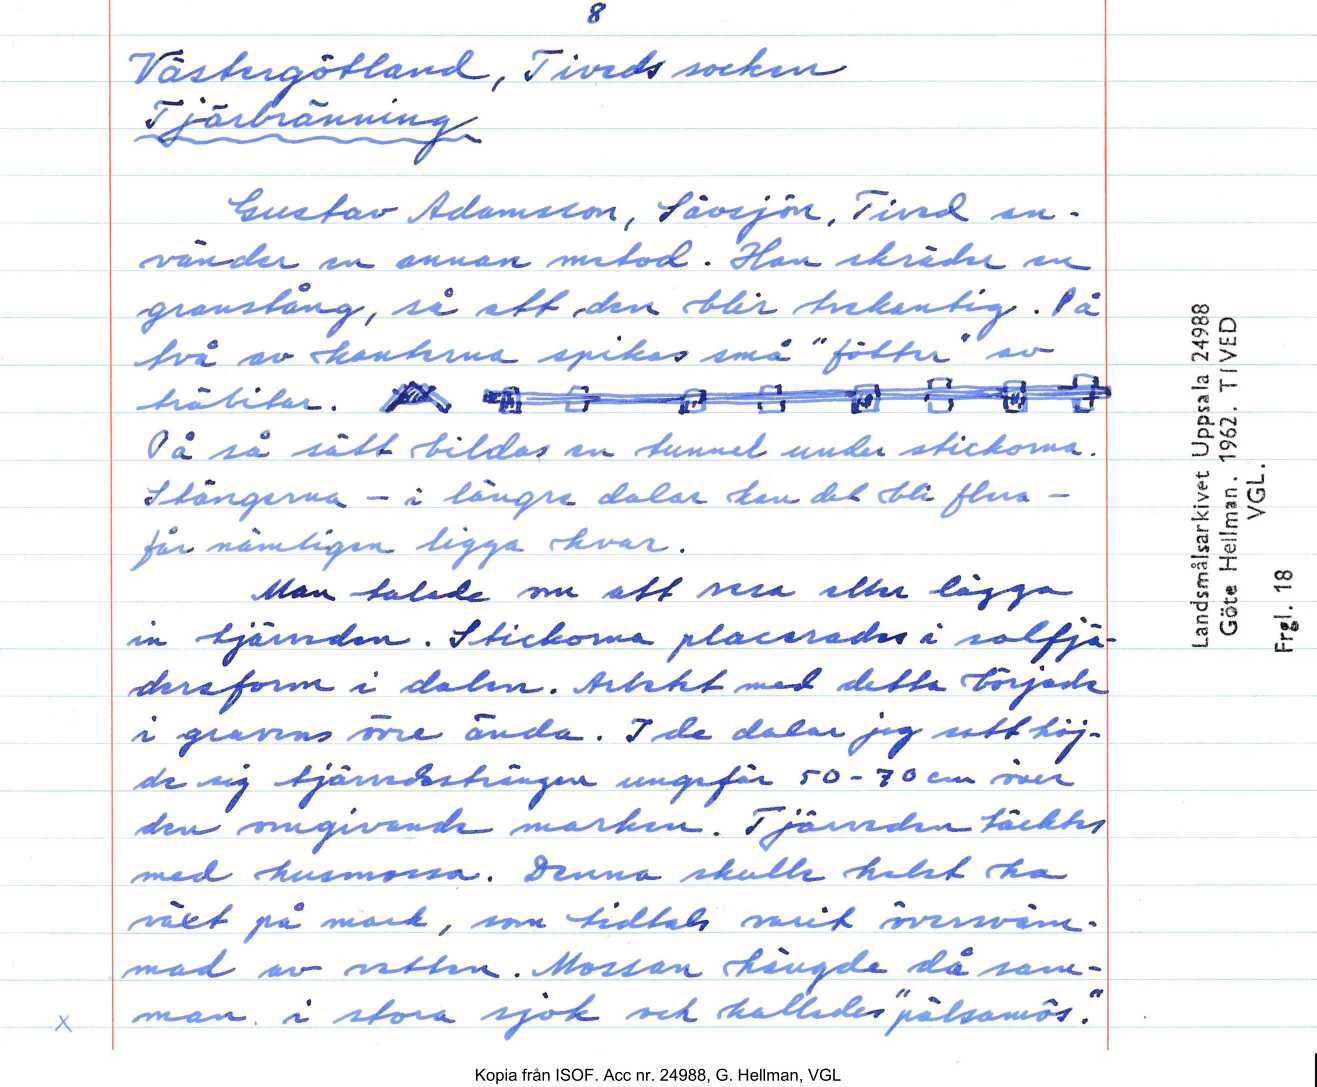 8
Västergötland, Tiveds socken
Tjärbränning
Gustav Adamsson, Sävsjön, Tived an-
vänder en annan metod. Han skräder en
granstång, så att den blir trekantig. På
två av kanterna spikas små "fötter" av
träbitar.
På så sätt bildas en tunnel under stickorna.
Stängerna – i längre dalar kan det bli flera –
får nämligen ligga kvar.
Man talade om att resa eller lägga
in tjärveden. Stickorna placerades i solfjä-
dersform i dalen. Arbetet med detta började
i gravens övre ända. I de dalar jag sett höj-
de sig tjärvedssträngen ungefär 50-70 cm över
den omgivande marken. Tjärveden täcktes
med husmossa. Denna skulle helst ha
växt på mark, som tidtals varit översväm-
mad av vatten. Mossan hängde då sam-
man i stora sjok och kallades "pälsamös."
x
Landsmålsarkivet Uppsala 24988
Göte Hellman. 1962. TIVED
VGL.
Frgl. 18
Kopia från ISOF. Acc nr. 24988, G. Hellman, VGL